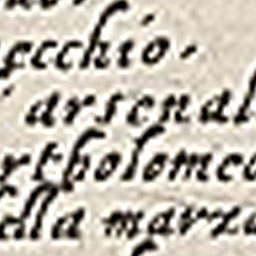 ecchio.
arsenal
rtholomeo
della marza